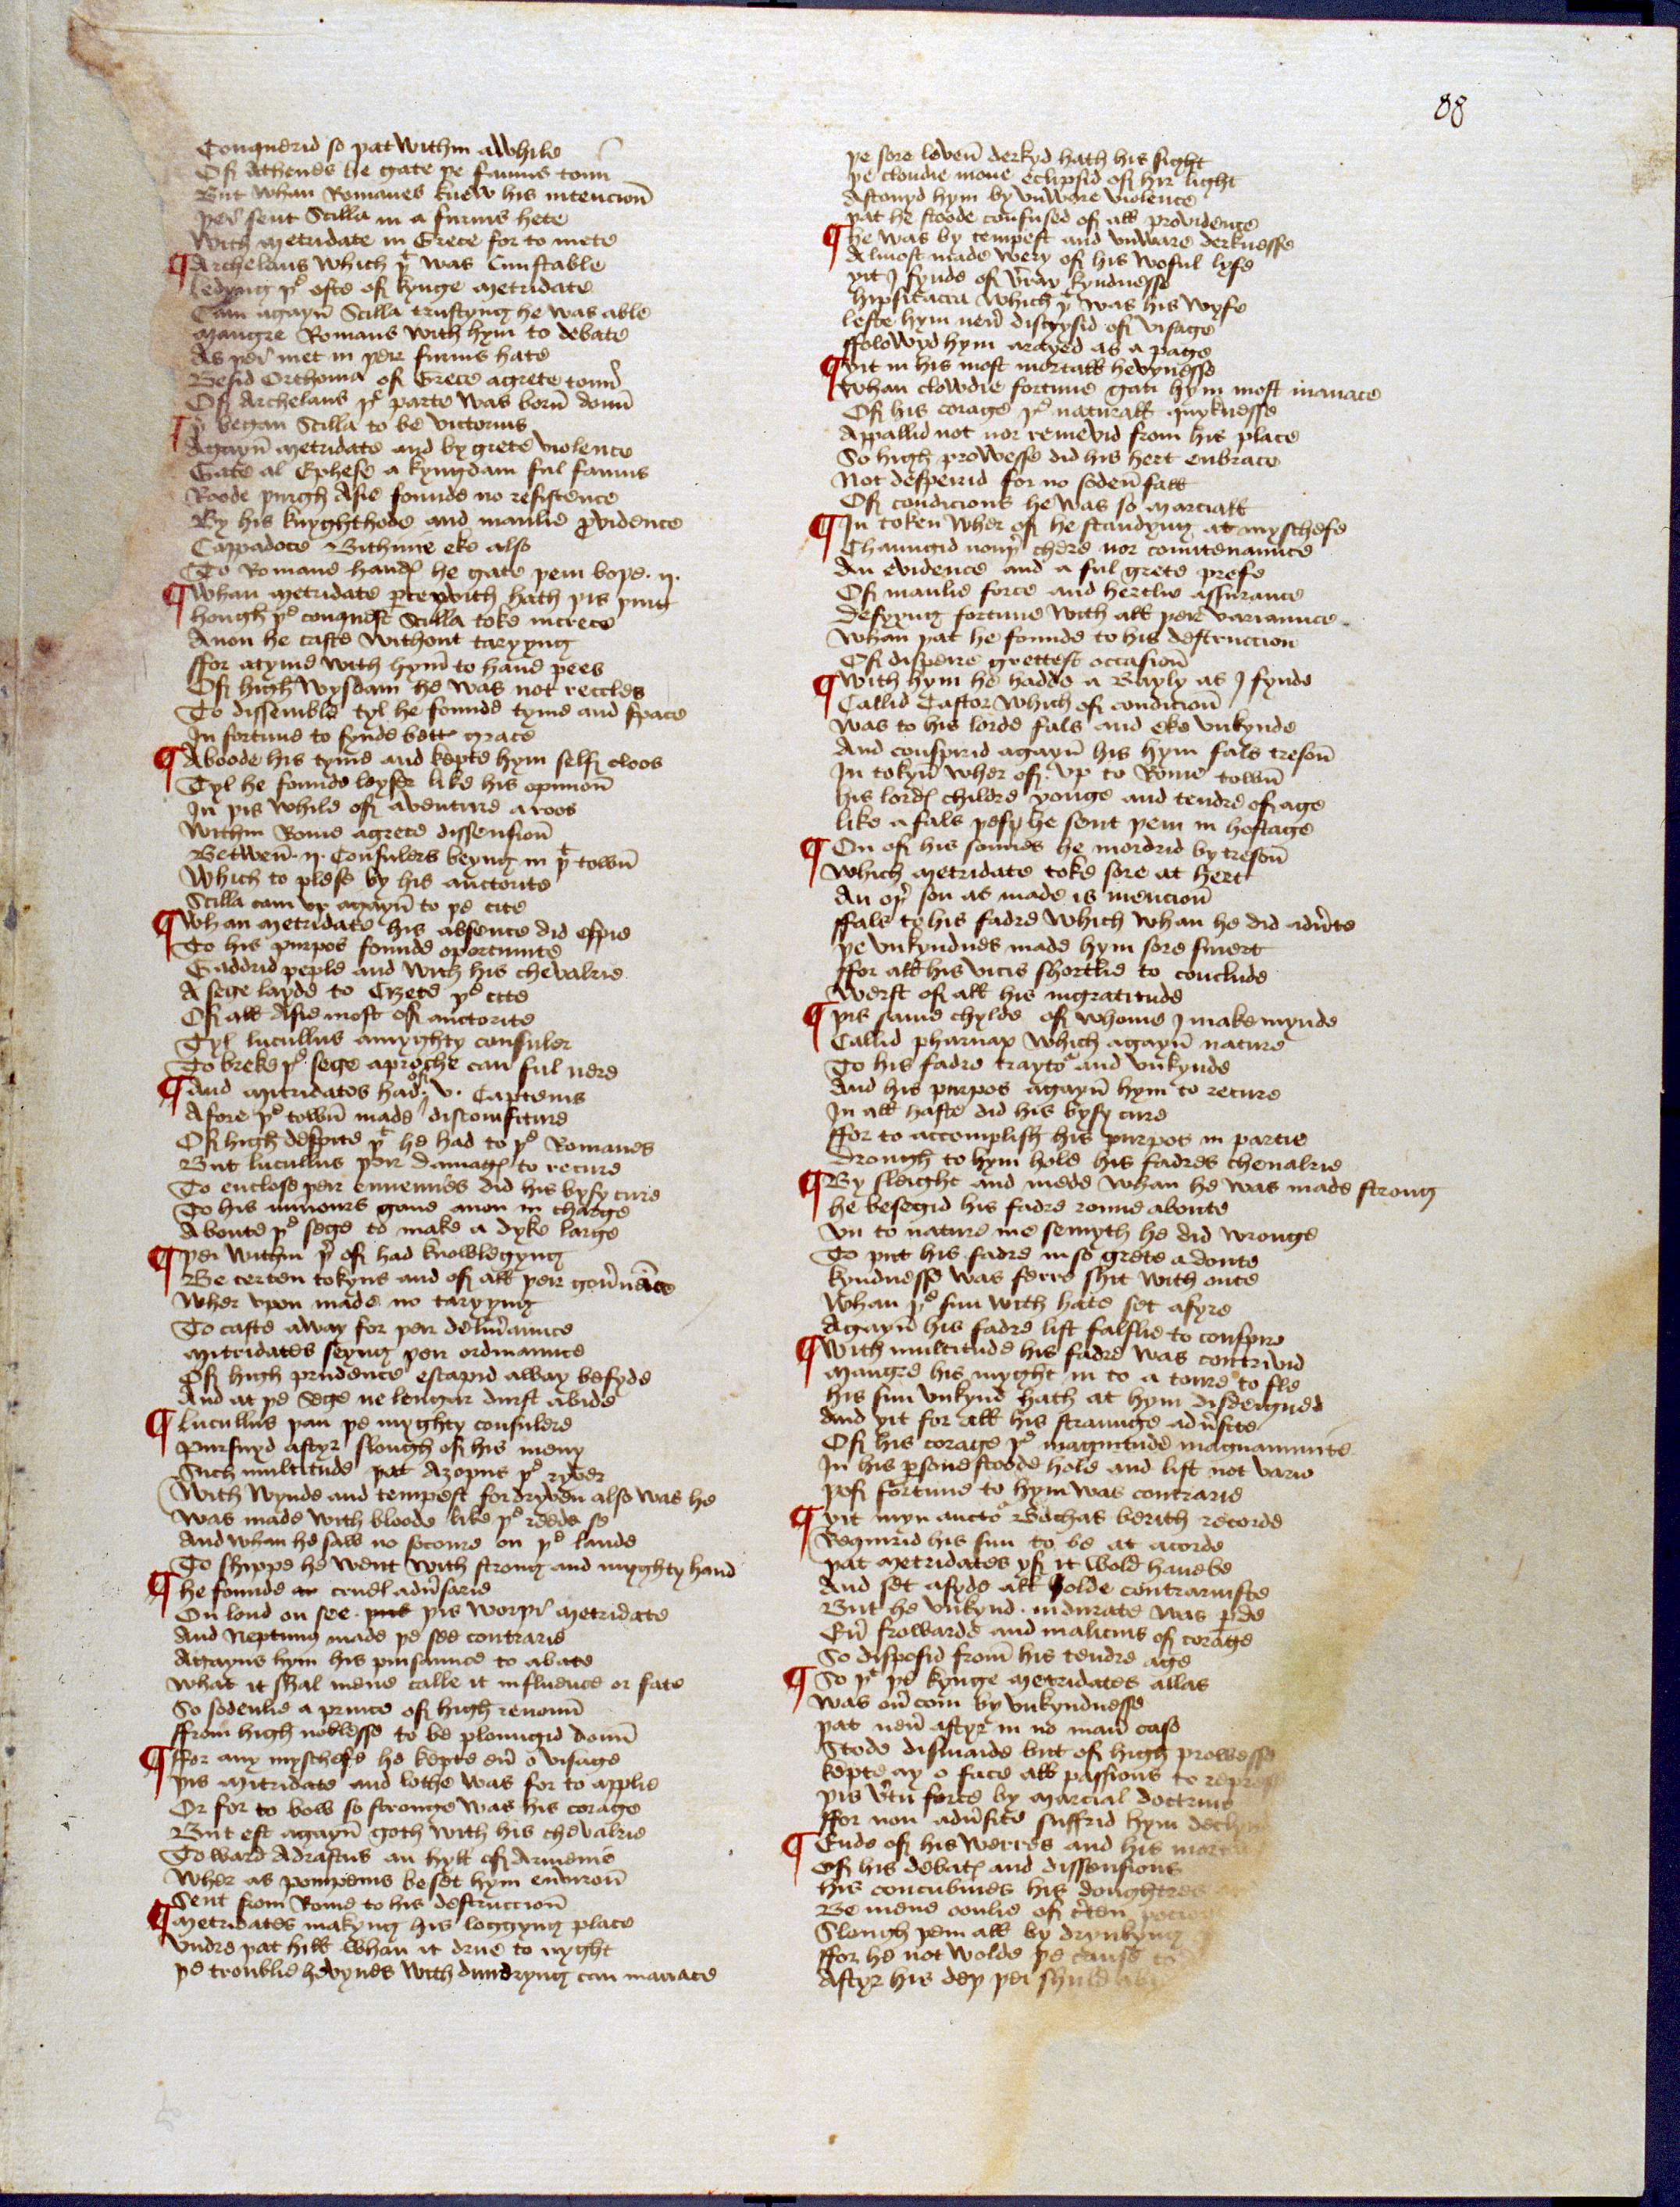 88
Conquerid so þat within a while
Off Athenes he gate þe famus toun
But whan Romanes knew his intencioun̄
þei sent Scilla in a furius hete
With Metridate in Grece for to mete
¶ Archelaus which þt was Cunstable
Ledyng þe oste off kynge Metridate
Cam agayn̄ Scilla trustyng he was able
Maugre Romans with hym to debate
As þei met in þeir furius hate
Besid Orthoma off Grece a grete toun̄
Off Archelaus þe parte was born̄ doun̄
¶ þr began Scilla to be victorius
Agayn̄ Metridate and by grete violence
Gate al Ephese a kyngdam ful famus
Roode þurgh Asie founde no resistence
By his knyghthode and manlie ꝓvidence
Cappadoce Bithinie eke also
To Romane handꝭ he gate þem boþe .ij.
¶ Whan Metridate ꝑceyvith hath þis þing
hough þe conquest Scilla toke increce
Anon he caste without taryyng
ffor a tyme with hym̄ to haue pees
Off high wysdam he was not reccles
To dissemble tyl he founde tyme and space
In fortune to fynde bettr grace
¶ Aboode his tyme and kepte hym self cloos
Tyl he founde leyser like his opinioun̄
In þis while off aventure aroos
Within Rome a grete dissensioun̄
Betwen̄ .ij. Consulers beyng in þt town̄
Which to plese by his auctorite
Scilla cam vp agayn̄ to þe cite
¶ Whan Metridate his absence did espie
To his purpos founde oportunite
Gaddrid peple and with his chevalrie
A sege layde to Cizete þe cite
Off all Asie most off auctorite
Tyl lucullus a myghty consuler
To breke þe sege aproche can ful nere
¶ And Mitridates had off .v. Capteins
Afore þe town̄ made discomfiture
Off high despite þt he had to þe Romanes
But lucullus þeir damagꝭ to recure
To enclose þeir ennemies did his bysy cure
To his minours gaue anon in charge
Aboute þe sege to make a dyke large
¶ þei within þr off had knowlegyng
Be certen tokyns and off all þeir gou̅nāce
Wher vpon made no taryyng
To caste away for þeir deliu̅aunce
Mitridates seyng þeir ordinaunce
Off high prudence escapid away besyde
And at þe sege ne lengar durst abide
¶ lucullus þan þe myghty consulere
Pursuyd aftyr slough off his meny
Such multitude þat Azopus þe ryver
With wynde and tempest fordryven also was he
Was made with bloode like þe reede se
And whan he saw no socoure on þe lande
To shippe he went with strong and myghty hand
¶ he founde cruel adu̅sarie
On lond on see þis worþi Metridate
And Neptunus made þe see contrarie
Agayns hym his puissaunce to abate
What it shal mene calle it influence or fate
So sodenlie a prince off high renoun̄
ffrom high noblesse to be plounngid doun̄
¶ ffor any myschefe he kepte eu̅ o visage
þis Mitridate and lothe was for to applie
Or for to bow so stronge was his corage
But eft agayn̄ goth with his chevalrie
Toward Adrastus an hyll off Armenie
Wher as pompeius beset hym enviroun̄
Sent from Rome to his destruccioun̄
¶ Metridates makyng his loggyng place
Vndre þat hill whan it drue to nyght
þe troublie hevynes with dundryng can manace
þe sore leven̄ derkyd hath his sight
þe cloudie mone eclipsid off hir light
Astonyd hym by vnware violence
þat he stoode confused off all providence
¶ he was by tempest and vnware derknesse
Almost made wery off his woful lyfe
yit I fynde off v̅ray kyndnesse
hipsitacea which þt was his wyfe
lefte hym neu̅ disgysid off visage
ffolowyd hym arayed as a page
¶ yit in his most mortall hevynesse
Whan clowdie fortune gan hym most manace
Off his corage þe naturall quyknesse
Appallid not nor remevid from his place
So high prowesse did his hert enbrace
Not despeirid for no soden̄ fall
Off condicions he was so marciall
¶ In token wher off he standyng at myschefe
Chaungid nouþr chere nor countenaunce
An evidence and a ful grete prefe
Off manlie force and hertlie assurance
Defyyng fortune with all þeir variaunce
Whan þat he founde to his destruccion
Off dispeire grettest occasioun̄
¶ With hym he hadde a Bayly as I fynde
Callid Castor which off condicioun̄
Was to his lorde fals and eke vnkynde
And conspirid agayn̄ his hym fals tresoun̄
In tokyn̄ wher off vp to Rome town̄
his lordꝭ childre yonge and tendre off age
like a fals þefe he sent þem in hostage
¶ On off his sonnes he mordrid by tresoun̄
Which Metridate toke sore at hert
An oþr son as made is mencioun̄
ffals to his fadre which whan he did adu̅te
þe vnkyndnes made hym sore smert
ffor all his vicis shortlie to conclude
Werst off all his ingratitude
¶ þis same chylde off whome I make mynde
Callid pharnax which agayn̄ nature
To his fadre traytor and vnkynde
And his purpos agayn̄ hym to recure
In all haste did his bysy cure
ffor to accomplish his purpos in partie
Drough to hym hole his fadres chevalrie
¶ By sleight and mede whan he was made strong
he besegid his fadre round aboute
Vn to nature me semyth he did wronge
To put his fadre in so grete a doute
kyndnesse was ferre shit with oute
Whan þe sun with hate set afyre
Agayn̄ his fadre list falslie to conspire
¶ With multitude his fadre was contrivid
Maugre his myght in to a toure to fle
his sun vnkynd hath at hym disdeigned
And yit for all his straunge adu̅site
Off his corage þe magnitude magnanimite
In his ꝑsone stoode hole and list not varie
þoff fortune to hym was contrarie
¶ yit myn auctor Bochas berith recorde
Requirid his sun to be at acorde
þat Metridates yff it wold haue be
And set asyde all holde contrariuste
But he vnkynd indurate was ꝑde
Eu̅ frowarde and malicius off corage
So disposid from̄ his tendre age
¶ So þt þe kynge Metridates allas
Was ou̅com by vnkyndnesse
þat neu̅ aftyr in no man̄ case
Stode dismaide but off high prowesse
kepte ay o face all passions to
þis v̅tu force by marcial doctrine
ffor non adu̅site suffrid hym
¶ Ende off his werres and his
Off his debatꝭ and dissensions
his concubines his doughtres
Be mene oonlie off c̅ten
Slough þem all by drynkyng
ffor he not wolde þe cause to
Aftyr his deþ þei shuld